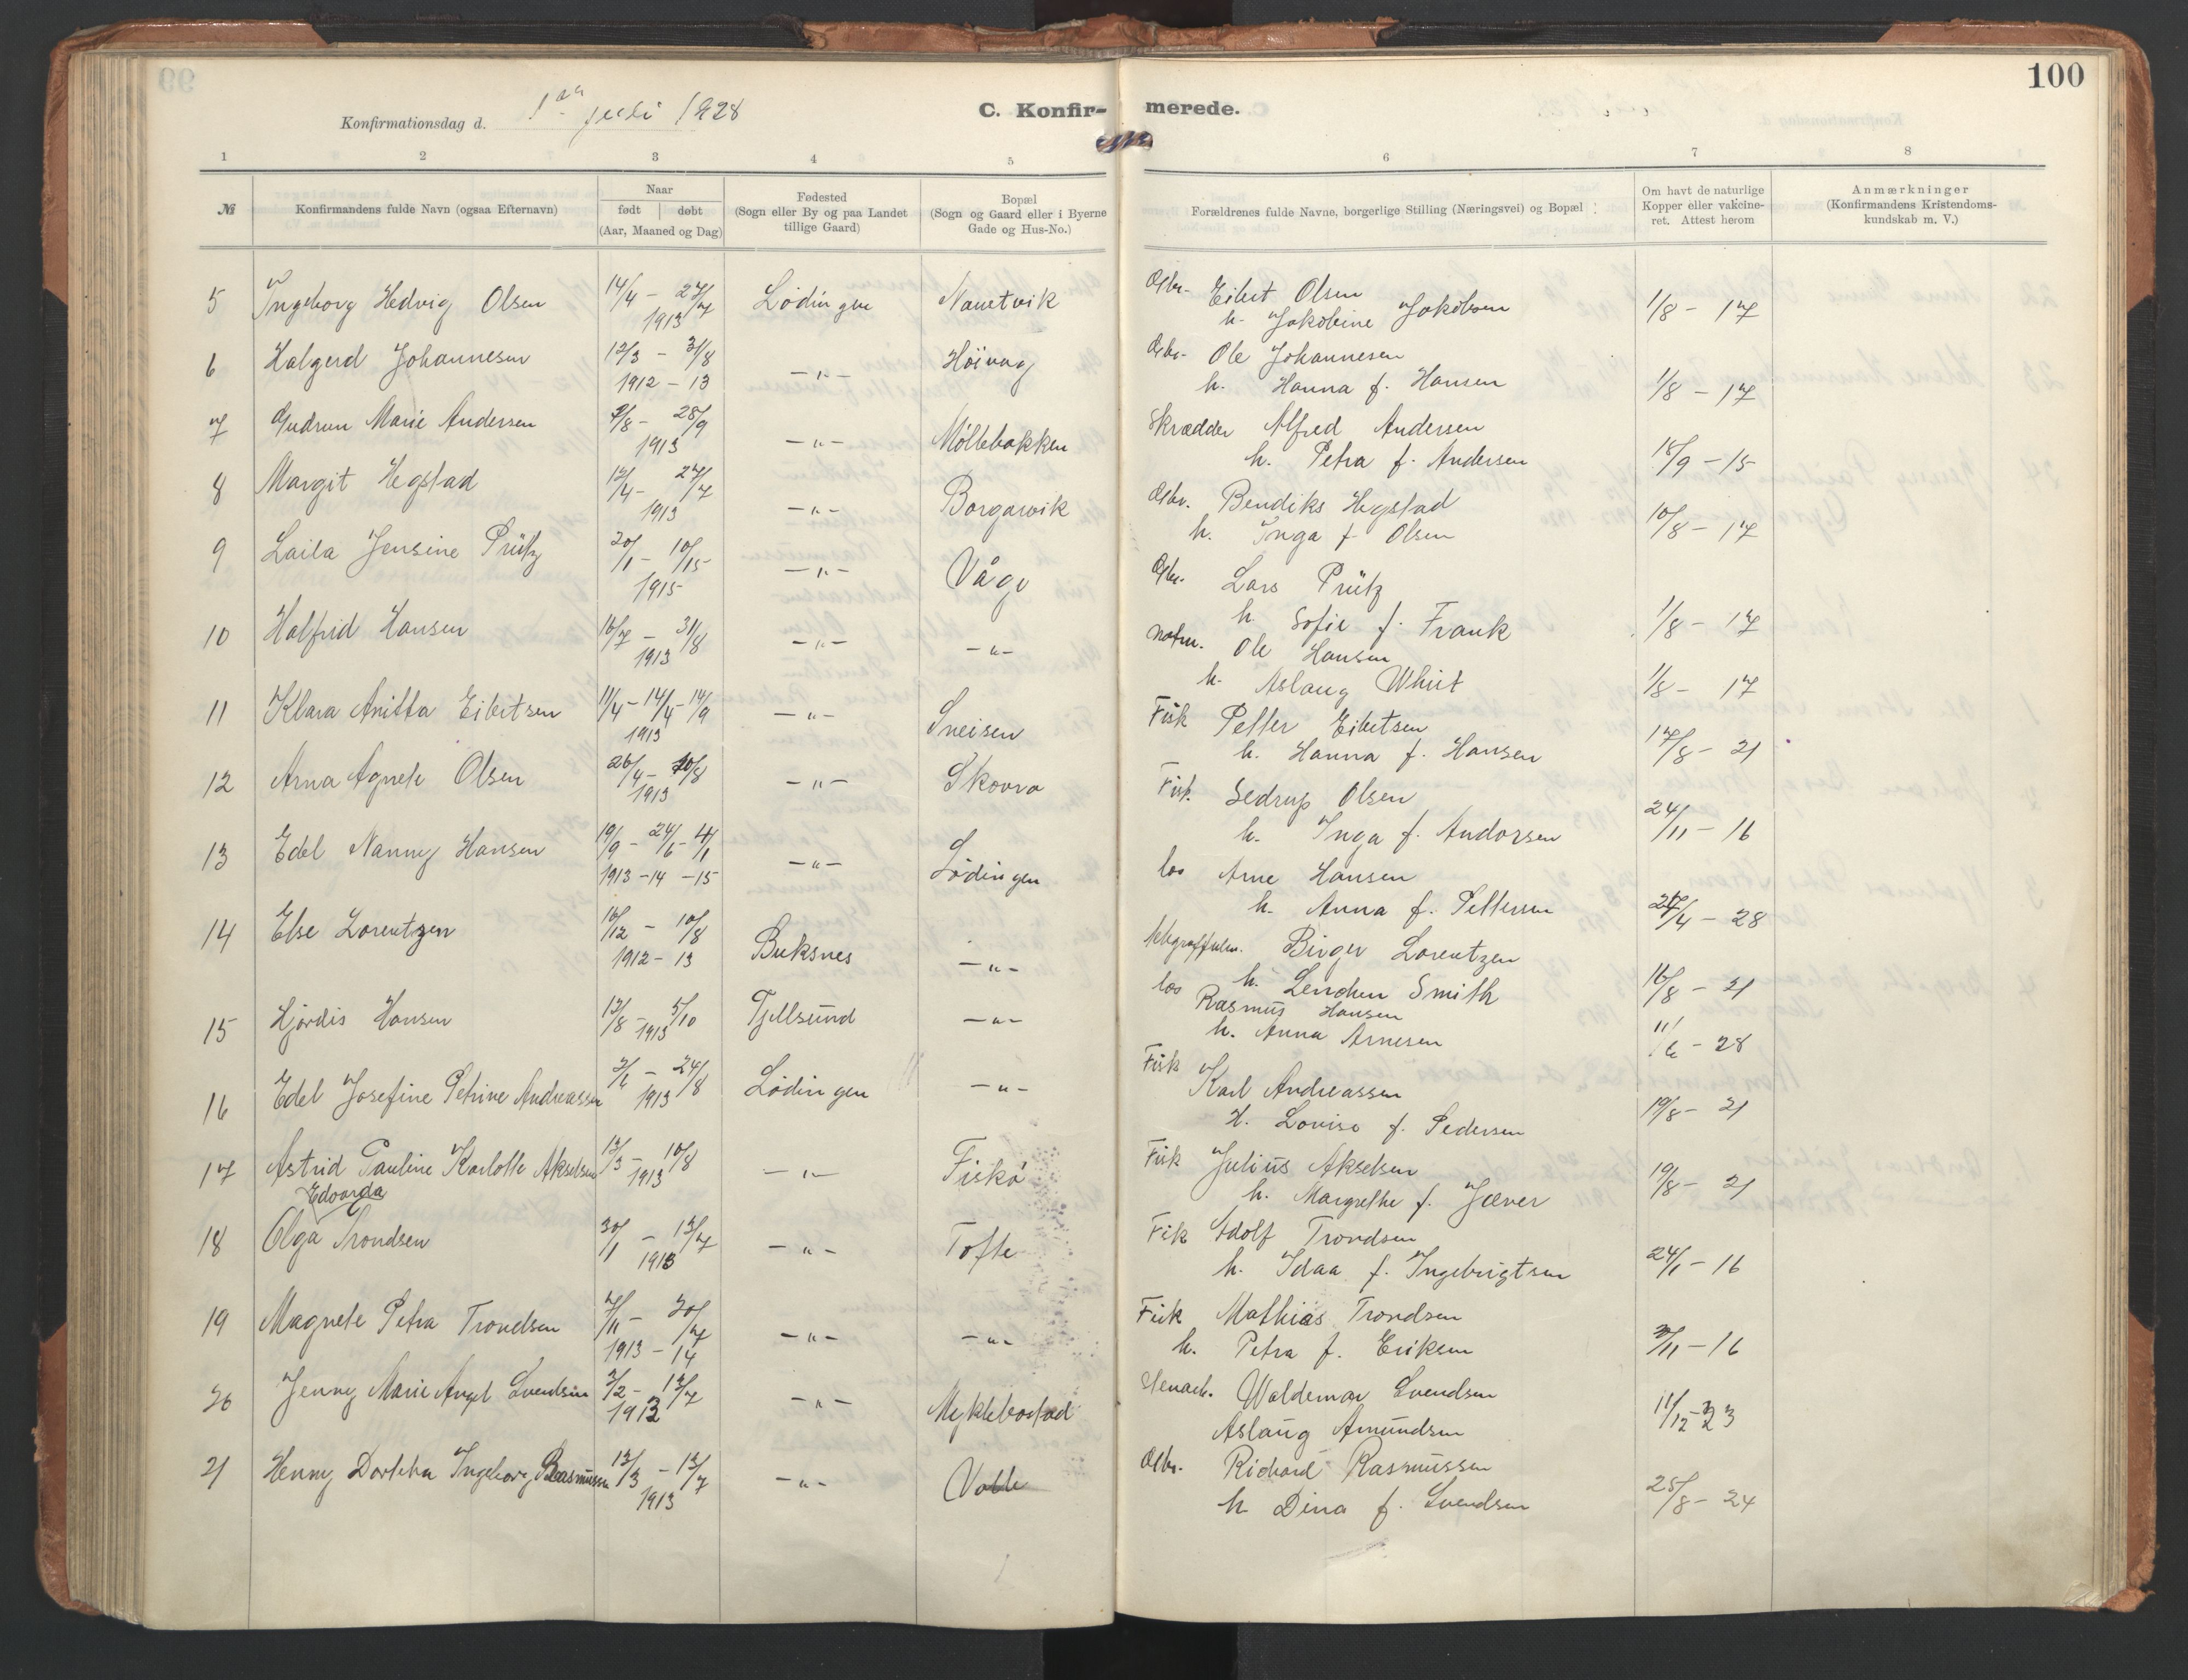 100
Konfirmationsdag d. 1ste juli 1928
C. Konfir-
merede.
1 2 3 4 5 6 7 8
№ Konfirmandens fulde Navn (ogsaa Efternavn)
Naar
født | døbt
(Aar, Maaned og Dag)
Fødested
(Sogn eller By og paa Landet
tillige Gaard)
Bopæl
(Sogn og Gaard eller i Byerne
Gade og Hus-No.)
Forældrenes fulde Navne, borgerlige Stilling (Næringsvei) og Bopæl
Om havt de naturlige
Kopper eller vakcine-
ret. Attest herom
Anmærkninger
(Konfirmandens Kristendoms-
kundskab m. V.)
5 Ingeborg Hedvig Olsen 14/4 - 27/7 1913 Lødingen Nauetvik Gbr. Eibert Olsen
h. Jakobine Jakobsen 1/8 - 17
6 Halgerd Johannesen 12/3 - 31/8 1912 - 13 -"- Høivaag Gbr. Ole Johannesen
h. Hanna f. Hansen 1/8 - 17
7 Gudrun Marie Andersen 9/8 - 28/9 1913 -"- Møllebakken Skrædder Alfred Andersen
h. Petra f. Andersen 18/9 - 15
8 Margit Hegstad 12/4 - 27/7 1913 -"- Borgarvik Gbr. Bendiks Hegstad
h. Inga f. Olsen 10/8 - 17
9 Laila Jensine Prütz 20/1 - 10/15 1915 -"- Våge Gbr. Lars Prütz
h. Sofie f. Frank 1/8 - 17
10 Halfrid Hansen 16/7 - 31/8 1913 -"- -"- Ole Hansen
h. Aslaug Whist 1/8 - 17
11 Klara Anitta Eibertsen 11/4 - 14/4 - 14/9 1913 -"- Sneisen Fisk Petter Eibertsen
h. Hanna f. Hansen 17/8 - 21
12 Arna Agnete Olsen 26/4 - 10/8 1913 -"- Skovra Fisk. Sedrup Olsen
h. Inga f. Andorsen 24/11 - 16
13 Edel Nanny Hansen 19/9 - 24/6 - 4/1 1913 - 14 - 15 -"- Lødingen los Arne Hansen
h. Anna f. Pettersen 24/4 - 28
14 Else Lorentzen 16/12 - 10/8 1912 - 13 Buksnes -"- Birger Lorentzen
h. Lenchen Smith 16/8 - 21
15 Hjørdis Hansen 12/8 - 5/10 1913 Tjellsund -"- los Rasmus Hansen
h. Anna Arnesen 11/6 - 28
16 Edel Josefine Petrine Andreassen 2/6 - 24/8 1913 Lødingen -"- Fisk Karl Andreassen
H. Lovise f. Pedersen 19/8 - 21
17 Astrid Pauline Karlotte Akselsen 12/3 - 10/8 1913 -"- Fiskø Fisk Julius Akselsen
h. Margrethe f. Jæver 19/8 - 21
Edvarda
18 Olga Trondsen 30/1 - 13/7 1913 -"- Tofte Fik Adolf Trondsen
h. Idaa f. Ingebrigtsen 24/1 - 16
19 Magnete Petra Trondsen 7/11 - 20/7 1913 - 14 -"- -"- Fisk Mathias Trondsen
h. Petra f. Eriksen 3/11 - 16
20 Jenny Marie Angel Svendsen 2/2 - 13/7 1913 -"- Myklebostad Waldemar Svendsen
Aslaug Amundsen 11/12 - 23
21 Henny Dorthea Ingeborg Rasmussen 12/3 - 13/7 1913 -"- Volle Gbr. Richard Rasmussen
h. Dina f. Svendsen 25/8 - 24